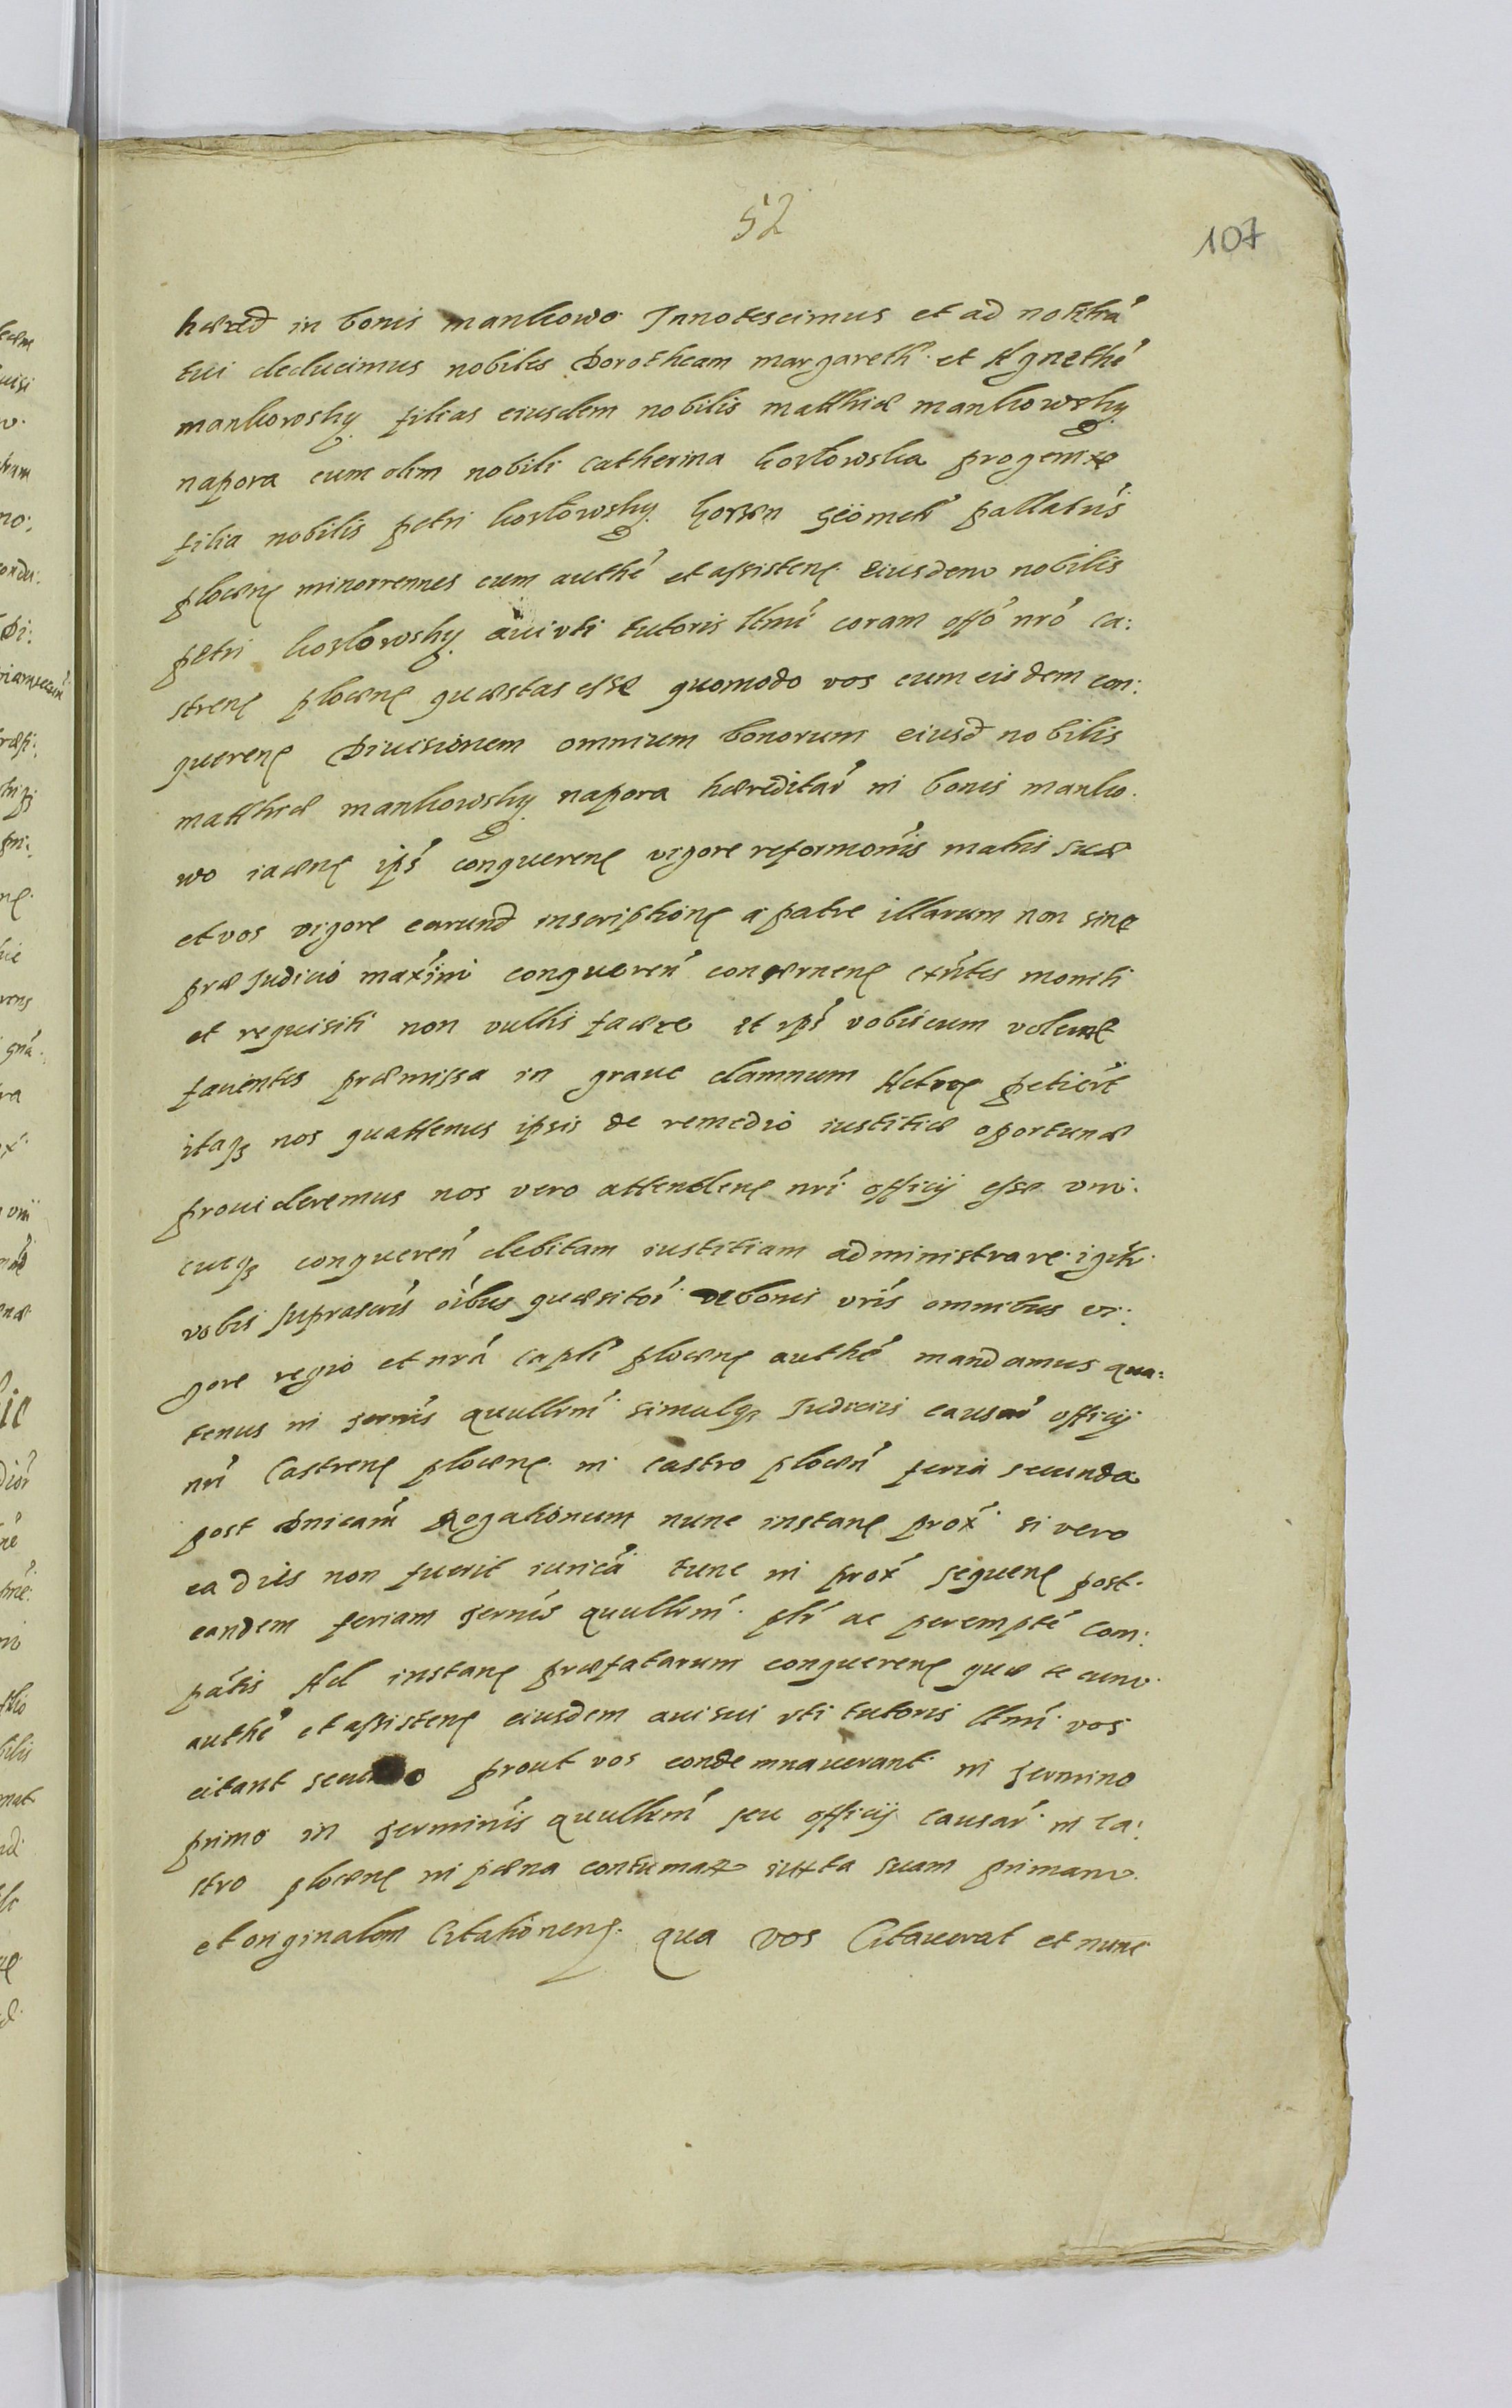 52
107
hæred in bonis mankowo Innotescimus et ad notitiã
tui deducimus nobiles Dorotheam margareth et Agnethẽ
mankowsky filias eiusdem nobilis matthiæ mankowsky
napora cum olim nobili catherina koslowska progenitæ
filia nobilis petri koslowsky pallatus
plocen minorennes cum authe et assisten eiusdem nobilis
petri koslowsky aui vti tutoris ltmi coram offo nro ca:
stren plocen quæstas esse quomodo vos cum eisdem con:
queren Diuisionem omnium bonorum eiusd nobilis
matthiæ mankowsky napora hæreditar in bonis manko
wo iacen ips conqueren vigore reformonis matris suæ
et vos vigore earund inscription a patre illarum non sine
præJudicio maximi conqueren concernen extntes moniti
et requisiti non vultis facere et ips vobiscum
fauentes præmissa in graue damnum petiert
itaq nos quattenus ipsis de remedio iustitiæ oportunæ
prouideremus nos vero attenden nri officij esse vni
cuiq conqueren debitam iustitiam administrare igitr
vobis suprascris oibus quæsitor de bonis vris omnibus vi:
gore regio et nra capli plocen authe mandamus qua:
tenus in termis quullrni simulq Judicijs causar officij
nri Castren plocen in castro plocen feria secunda
post dnicam Rogationum nunc instan prox si vero
ea dies non fuerit iurica tunc in prox sequen post
eandem feriam termis quullrni plr ac perempte com:
patis Ad instan præfatarum conqueren quæ te cum
authe et assisten eiusdem aui sui vti tutoris ltmi vos
citant secundo prout vos condemnauerant in termino
primo in terminis quullrni seu officij causar in ca:
stro plocen in pæna contumaci iuxta suam primam
et originalem Citationem qua vos Citauerat et nunc